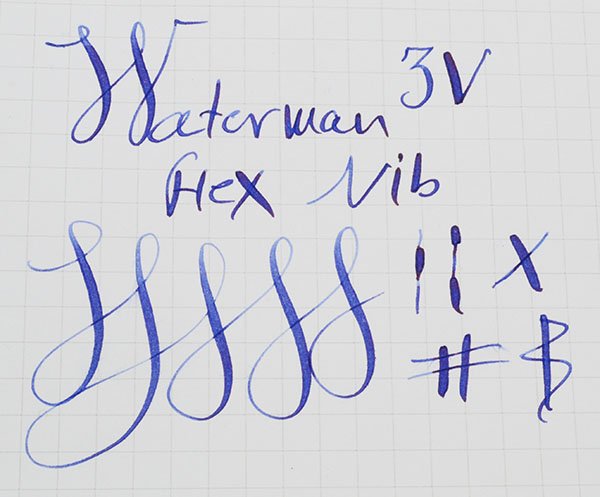 Waterman 3V
Flex Nib
X
# $